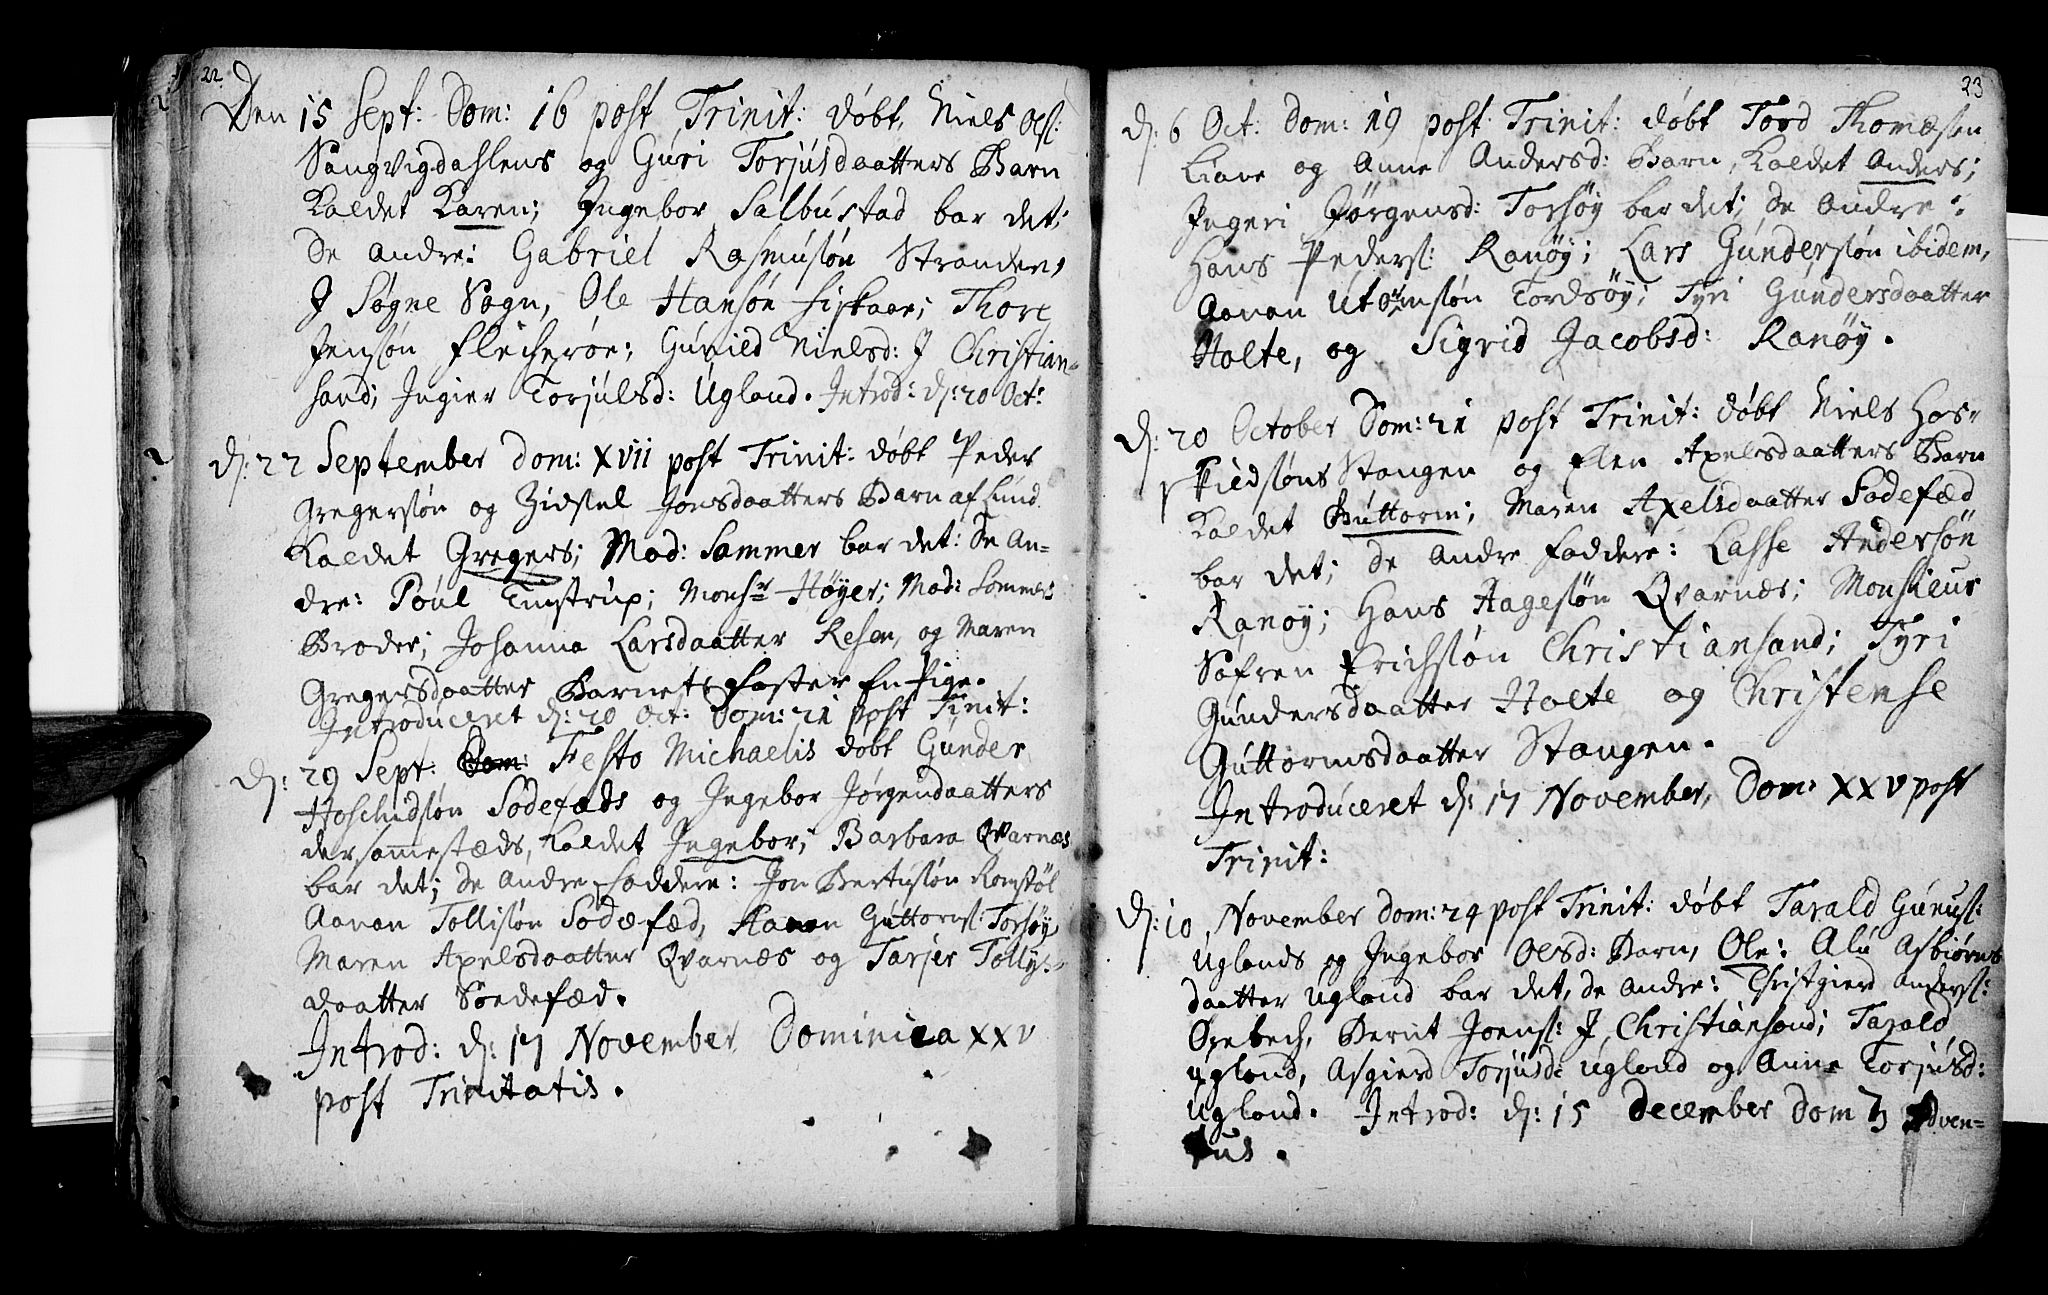 22.
Den 15 Sept: Dom: 16 post Trinit: døbt, Niels Ols:
Sangvigdahlens og Guri Torjusdaatters Barn
Kaldet Karen; Ingebor Salbustad bar det;
De andre: Gabriel Rasmusøn Stranden,
J Søgne Sogn, Ole Hansøn Fiskaae; Thore
Jensøn Flecherøe; Gunild Nielsd: J Christian-
sand; Ingier Torjulsd: Ugland. Introd: d: 20 Oct:
d: 22 September Dom: XVII post Trinit: døbt Peder
Gregersøn og Zidsel Jonsdaatters Barn af Lund
Kaldet Gregers; Mad: Sammer bar det: De An-
dre: Poul Timstrup; Monsr Høyer; Mad: Sommers
Broder; Johanna Larsdaatter Resen, og Maren
Gregersdaatter Barnets Faster En Pige.
Introduceret d: 20 Oct: Dom: 21 post Tinit:
d: 29 Sept: Dom: Festo Michaelis døbt Gunder
Hoschildsøn Sødefæds og Ingebor Jørgendaatters
dersammestæds, Kaldet Ingebor; Barbara Qvarnæs
bar det; De andre Faddere: Jon Bertusøn Romstøl
Aanon Tollisøn Sodefæd, Aanon Guttorms: Torsøy
Maren Axelsdaatter Qvarnæs og Tarjer Tollys-
daatter Søedefæd.
Introd: d: 17 November Dominica XXV
post Trinitatis.
23
d: 6 Oct: Dom: 19 post Trinit: døbt Tord Thomæsen
Liane og Anne Andersd: Barn, Kaldet Anders;
Ingeri Jørgensd: Torsøy bar det; De Andre:
Hans Peders: Ranøy; Lars Gundersøn ibidem,
Aanon Utomsøn Tordsøy; Tyri Gundersdaatter
Holte, og Sigrid Jacobsd: Ranøy.
d: 20 October Dom: 21 post Trinit: døbt Niels Hos-
kieldsøns Stangen og Elen Axelsdaatters Barn
Kaldet Guttorm; Maren Axelsdaatter Sodefæd
bar det; De Andre Faddere: Lasse Andersøn
Ranøy; Hans Aagesøn Qvarnæs; Monsieur
Søfren Erichsøn Christiansand; Tyri
Gundersdaatter Holte og Christense
Guttormsdaatter Stangen.
Introduceret d: 17 November, Dom: XXV post
Trinit:
d: 10 November Dom: 24 post Trinit: døbt Tarald Gunuls:
Uglands og Ingebor Olsd: Barn, Ole: Alu Asbiørns
daatter Ugland bar det, De Andre: Thistgierd Anders:
Ørebech, Bernt Joens: J, Christiansand; Tarald
Ugland, Asgierd Torjusd: Ugland og Anne Torjusd:
Ugland. Introd: d: 15 December Dom 3 Adven-
tus.